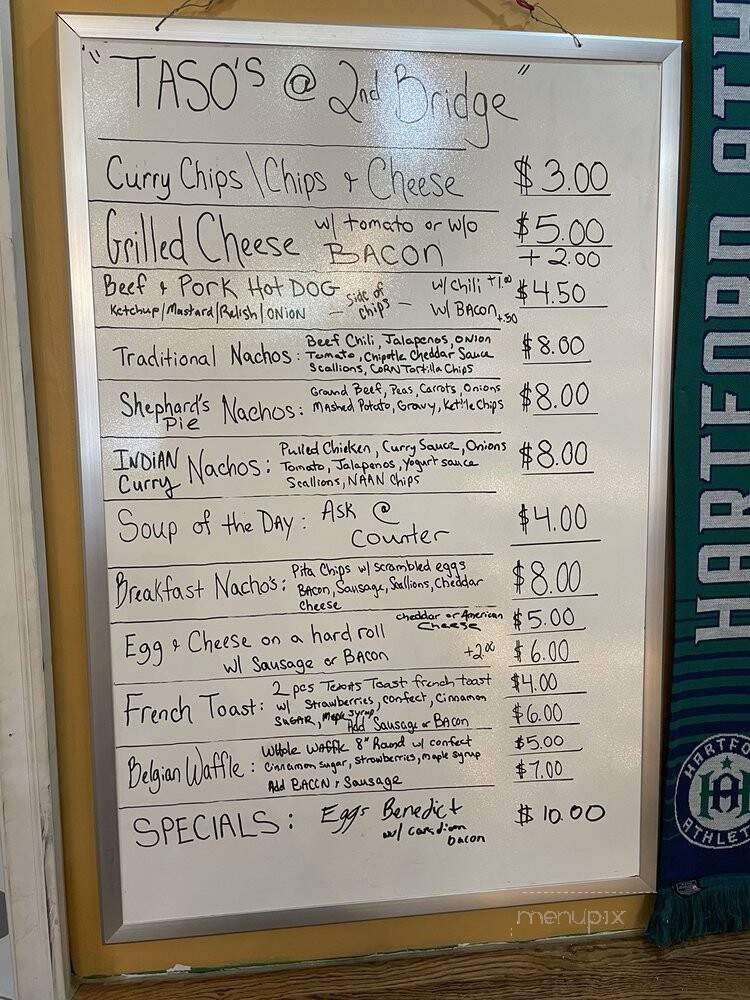 "TASO'S @ 2nd Bridge"
Curry Chips \ Chips & Cheese $3.00
Grilled Cheese w/ tomato or w/o $5.00
BACON +2.00
Beef & Pork Hot DOG w/ chili +1.00 $4.50
Ketchup/Mustard/Relish/ONION - side of chips - w/ BACON +.50
Traditional Nachos: Beef Chili, Jalapenos, ONION $8.00
Tomato, Chipotle Cheddar Sauce
Scallions, CORN Tortilla Chips
Shephard's Pie Nachos: Ground Beef, Peas, Carrots, Onions $8.00
MAshed Potato, Gravy, Kettle Chips
INDIAN Curry Nachos: Pulled Chicken, Curry Sauce, Onions $8.00
Tomato, Jalapenos, Yogurt sauce
Scallions, NAAN Chips
Soup of the DAY: Ask @ $4.00
Counter
Breakfast Nacho's: Pita Chips w/ scrambled eggs $8.00
BACON, Sausage, Scallions, Cheddar
Cheese
cheddar or American $5.00
Cheese
Egg & Cheese on a hard roll
w/ Sausage or BACON +2.00 $6.00
French Toast: 2 pcs Texas Toast french toast $4.00
w/ Strawberries, confect, Cinnamon
SUGAR, Maple syrup
Add Sausage or BACON $6.00
Belgian Waffle: Whole Waffle 8" Round w/ confect $5.00
Cinnamon sugar, strawberries, maple syrup
Add BACON & Sausage $7.00
SPECIALS: Eggs Benedict $10.00
w/ canadian
bacon
HARTFORD ATH
HARTFO
HA
ATHLET
menupix